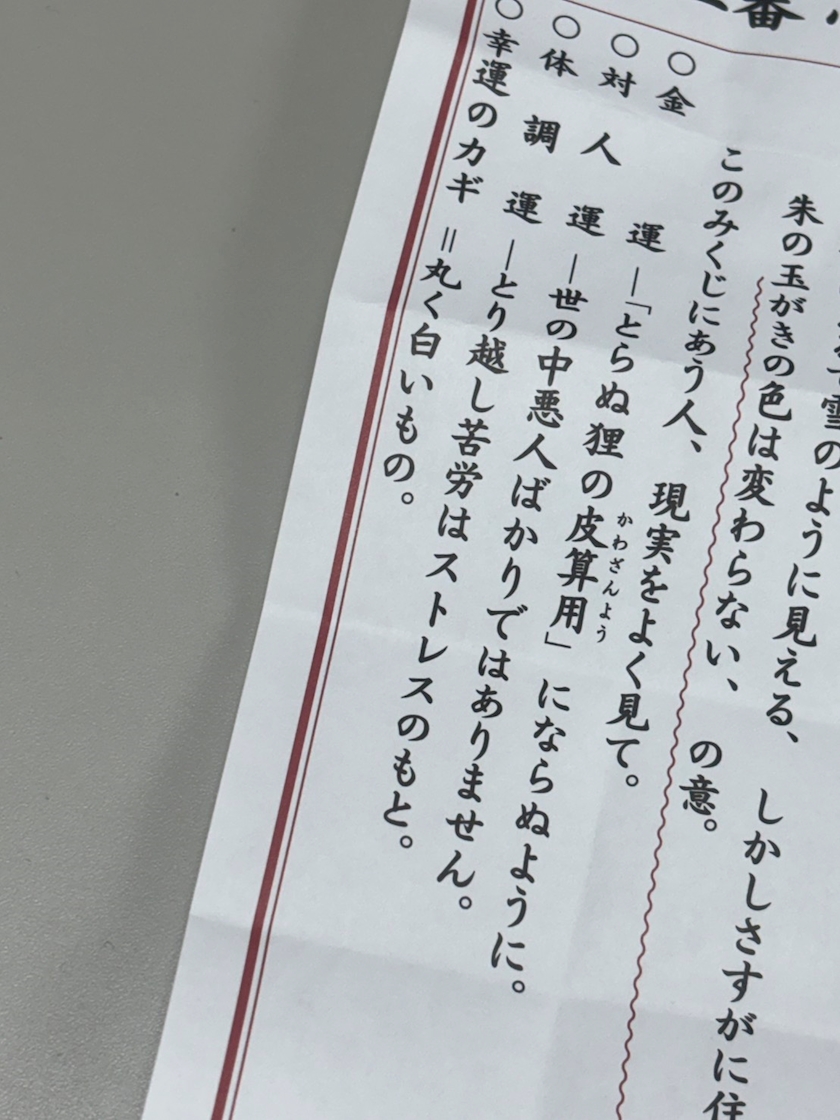 番
雪のように見える、しかしさすがに住
朱の玉がきの色は変わらない、の意。
このみくじにあう人、現実をよく見て。
○金運―「とらぬ狸の皮算用」にならぬように。
かわざんよう
○対人運―世の中悪人ばかりではありません。
○体調運―とり越し苦労はストレスのもと。
○幸運のカギ＝丸く白いもの。